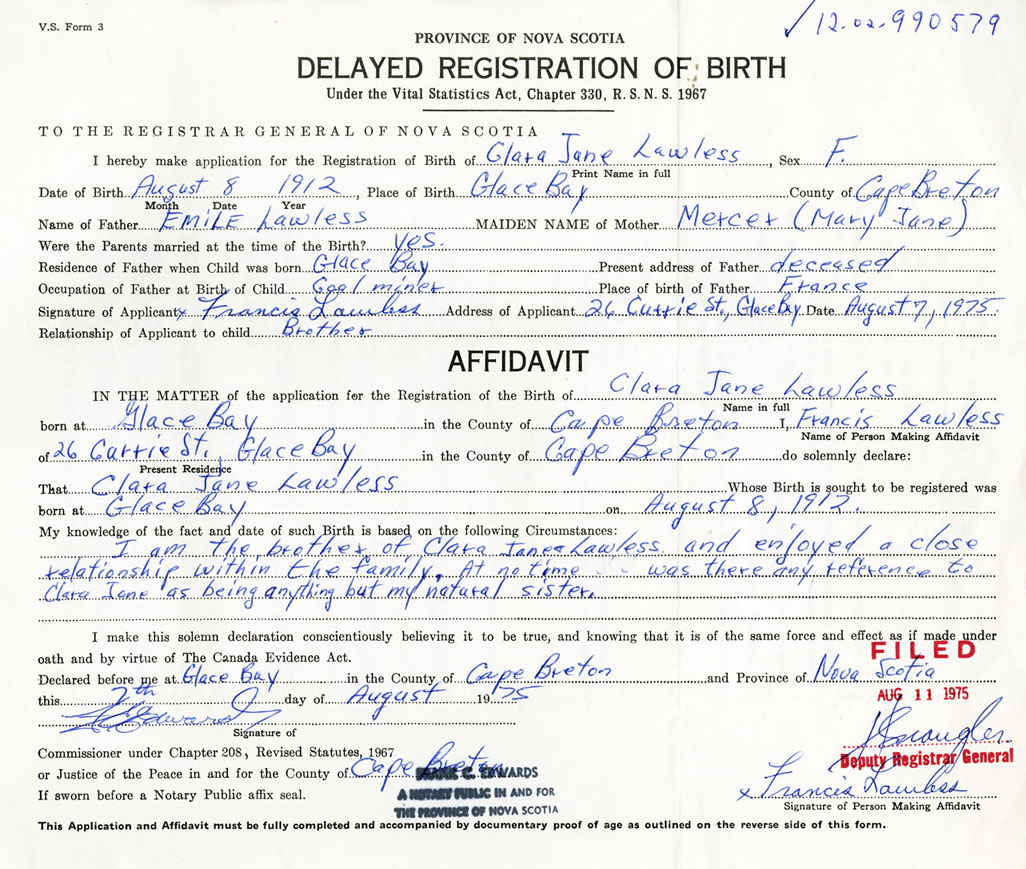 V.S. Form 3
12-02-990579
PROVINCE OF NOVA SCOTIA
DELAYED REGISTRATION OF BIRTH
Under the Vital Statistics Act, Chapter 330, R.S.N.S. 1967
TO THE REGISTRAR GENERAL OF NOVA SCOTIA
I hereby make application for the Registration of Birth of Clara Jane Lawless, Sex F.
Print Name in full
Date of Birth August 8 1912, Place of Birth Glace Bay County of Cape Breton
Month Date Year
Name of Father EMiLE Lawless MAIDEN NAME of Mother Mercer (Mary Jane)
Were the Parents married at the time of the Birth? yes.
Residence of Father when Child was born Glace Bay Present address of Father deceased
Occupation of Father at Birth of Child Coal miner Place of birth of Father France
Signature of Applicant x Francis Lawless Address of Applicant 26 Currie St., Glace Bay Date August 7, 1975.
Relationship of Applicant to child Brother
AFFIDAVIT
IN THE MATTER of the application for the Registration of the Birth of Clara Jane Lawless
Name in full
born at Glace Bay in the County of Cape Breton I, Francis Lawless
Name of Person Making Affidavit
of 26 Currie St., Glace Bay in the County of Cape Breton do solemnly declare:
Present Residence
That Clara Jane Lawless Whose Birth is sought to be registered was
born at Glace Bay on August 8, 1912.
My knowledge of the fact and date of such Birth is based on the following Circumstances:
I am the brother of Clara Jane Lawless and enjoyed a close
relationship within the family. At no time was there any reference to
Clara Jane as being anything but my natural sister.
I make this solemn declaration conscientiously believing it to be true, and knowing that it is of the same force and effect as if made under
oath and by virtue of The Canada Evidence Act.
FILED
Declared before me at Glace Bay in the County of Cape Breton and Province of Nova Scotia
this 7th day of August 1975
AUG 11 1975
Edwards
Signature of
Commissioner under Chapter 208, Revised Statutes, 1967
Deputy Registrar General
or Justice of the Peace in and for the County of Cape Breton
C. EDWARDS
x Francis Lawless
If sworn before a Notary Public affix seal.
A NOTARY PUBLIC IN AND FOR
Signature of Person Making Affidavit
THE PROVINCE OF NOVA SCOTIA
This Application and Affidavit must be fully completed and accompanied by documentary proof of age as outlined on the reverse side of this form.